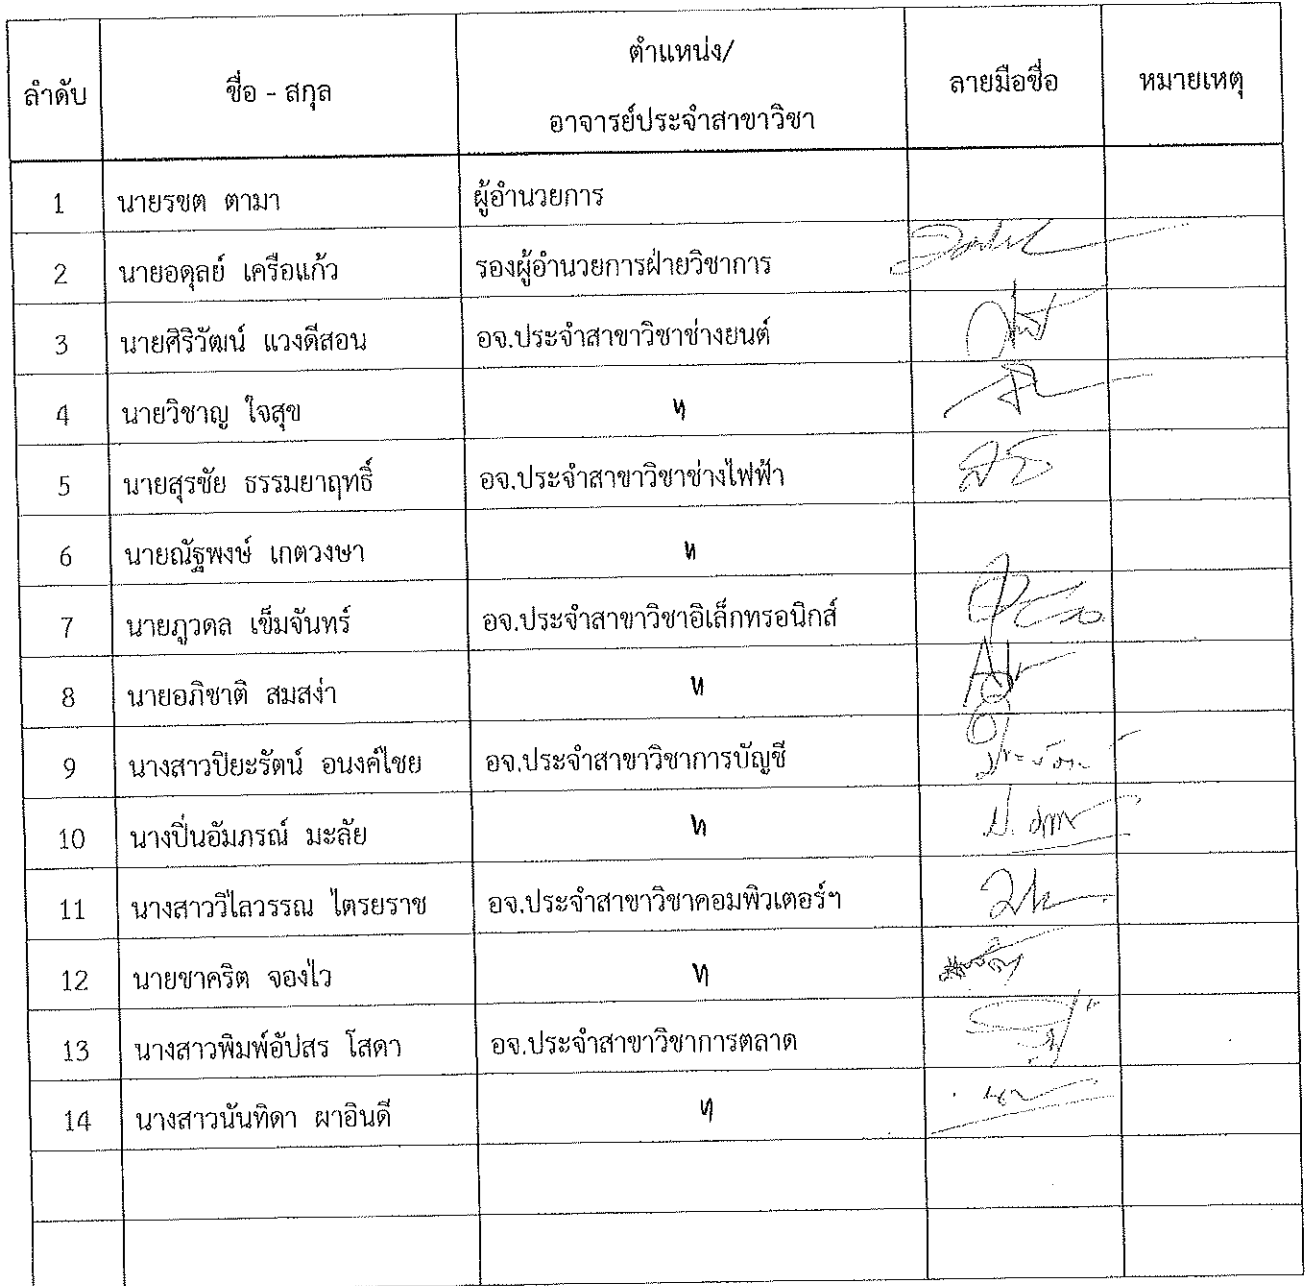 ลำดับ ชื่อ - สกุล ตำแหน่ง/ ลายมือชื่อ หมายเหตุ
อาจารย์ประจำสาขาวิชา
1 นายรชต ตามา ผู้อำนวยการ
2 นายอดุลย์ เครือแก้ว รองผู้อำนวยการฝ่ายวิชาการ
3 นายศิริวัฒน์ แวงดีสอน อจ.ประจำสาขาวิชาช่างยนต์
4 นายวิชาญ ใจสุข
5 นายสุรชัย ธรรมยาฤทธิ์ อจ.ประจำสาขาวิชาช่างไฟฟ้า
6 นายณัฐพงษ์ เกตวงษา
7 นายภูวดล เข็มจันทร์ อจ.ประจำสาขาวิชาอิเล็กทรอนิกส์
8 นายอภิชาติ สมสง่า
9 นางสาวปิยะรัตน์ อนงค์ไชย อจ.ประจำสาขาวิชาการบัญชี
10 นางปิ่นอัมภรณ์ มะลัย
11 นางสาววิไลวรรณ ไตรยราช อจ.ประจำสาขาวิชาคอมพิวเตอร์ฯ
12 นายชาคริต จองไว
13 นางสาวพิมพ์อัปสร โสดา อจ.ประจำสาขาวิชาการตลาด
14 นางสาวนันทิดา ผาอินดี